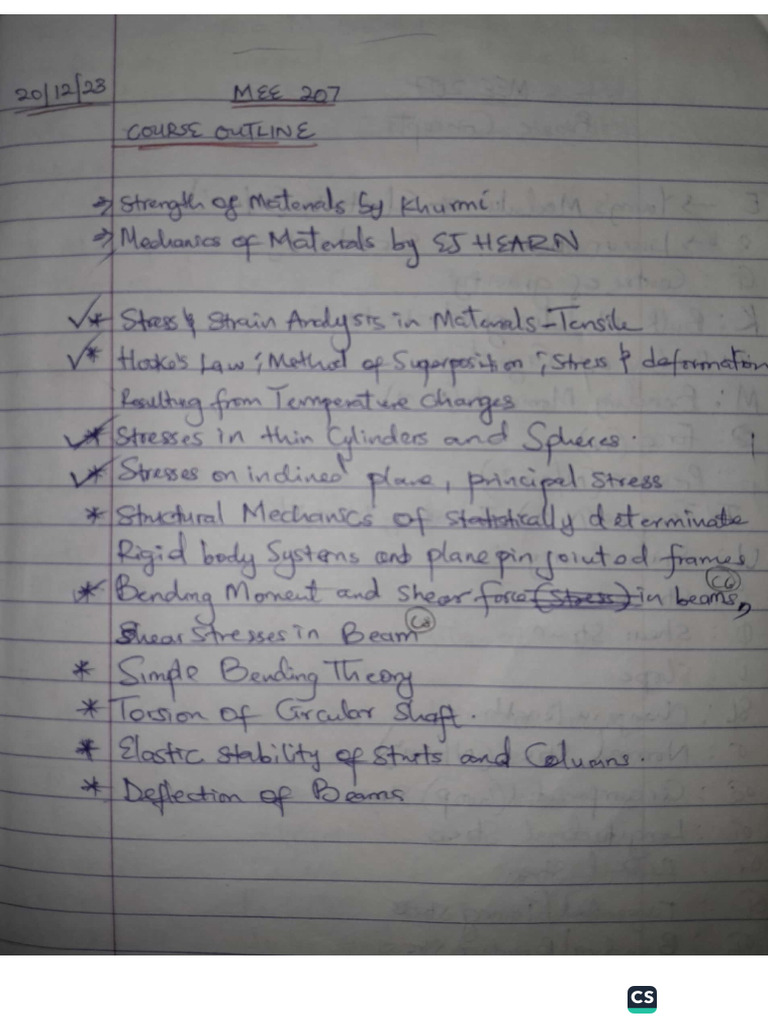 20/12/23 MEE 207
COURSE OUTLINE
⇒ Strength of Materials by Khurmi
⇒ Mechanics of Materials by EJ HEARN
✓* Stress & Strain Analysis in Materials - Tensile
✓* Hooke's Law; Method of Superposition; Stress & deformation
Resulting from Temperature changes
✓* Stresses in thin Cylinders and Spheres.
✓* Stresses on inclined plane, principal stress
* Structural Mechanics of statistically determinate
Rigid body Systems and plane pin jointed frames
* Bending Moment and shear force (stress) in beams, C6
Shear Stresses in Beam C8
* Simple Bending Theory
* Torsion of Circular Shaft.
* Elastic stability of Struts and Columns.
* Deflection of Beams
CS